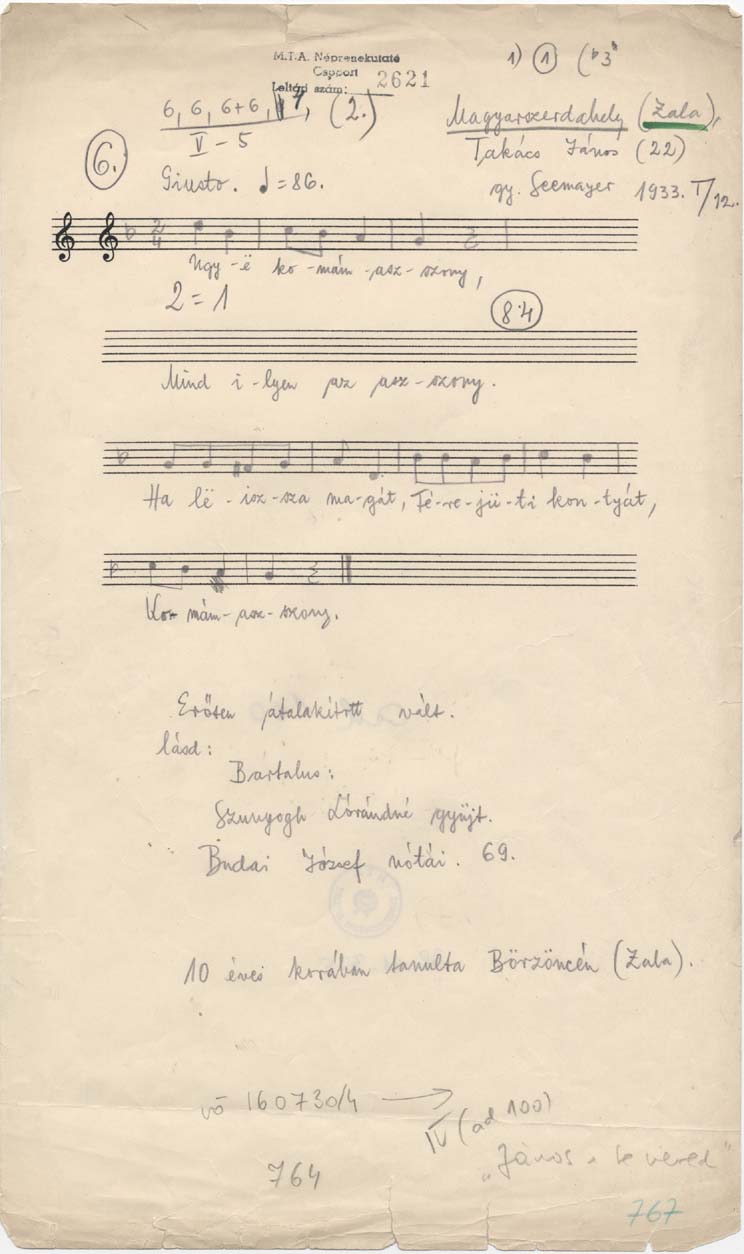 M.T.A. Népzenekutató
Csoport
Leltári szám: 2621
1) 1 (b3
6, 6, 6+6, 4, (2.)
V - 5
Magyarszerdahely (Zala),
Takács János (22)
gy. Seemayer 1933. I/12.
6.
Giusto. ♩=86.
2/4
Ugy-ë ko-mám-asz-szony,
2=1
8:4
Mind i-lyen az asz-szony.
Ha lë-isz-sza ma-gát, Fé-re-jü-ti kon-tyát,
Ko-mám-asz-szony.
Erősen átalakított vált.
lásd:
Bartalus:
Szunyogh Lórándné gyüjt.
Budai József nótái. 69.
10 éves korában tanulta Börzöncén (Zala).
vö 160730/4 →
IV (ad 100)
764
"János
767